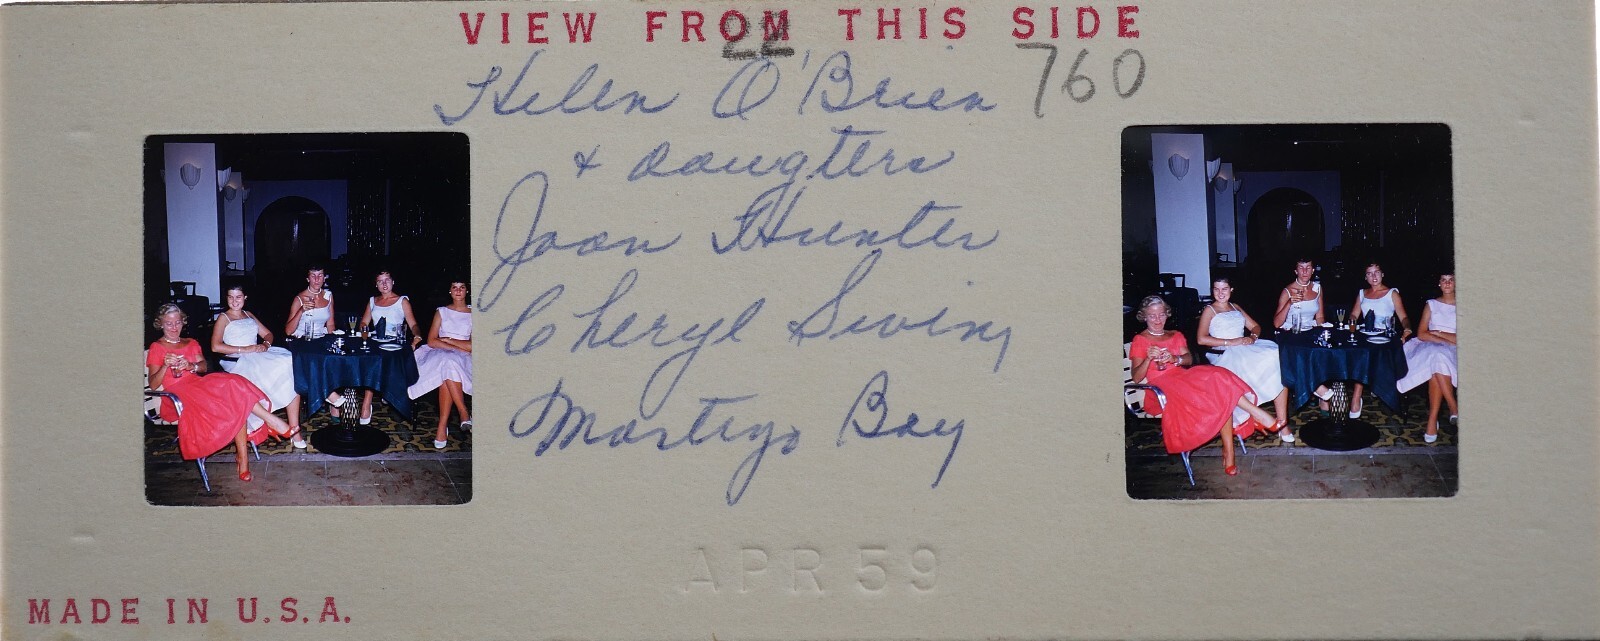 VIEW FROM THIS SIDE
22
Helen O'Brien 760
& daugters
Joan Hunter
Cheryl
Bay
APR 59
MADE IN U.S.A.